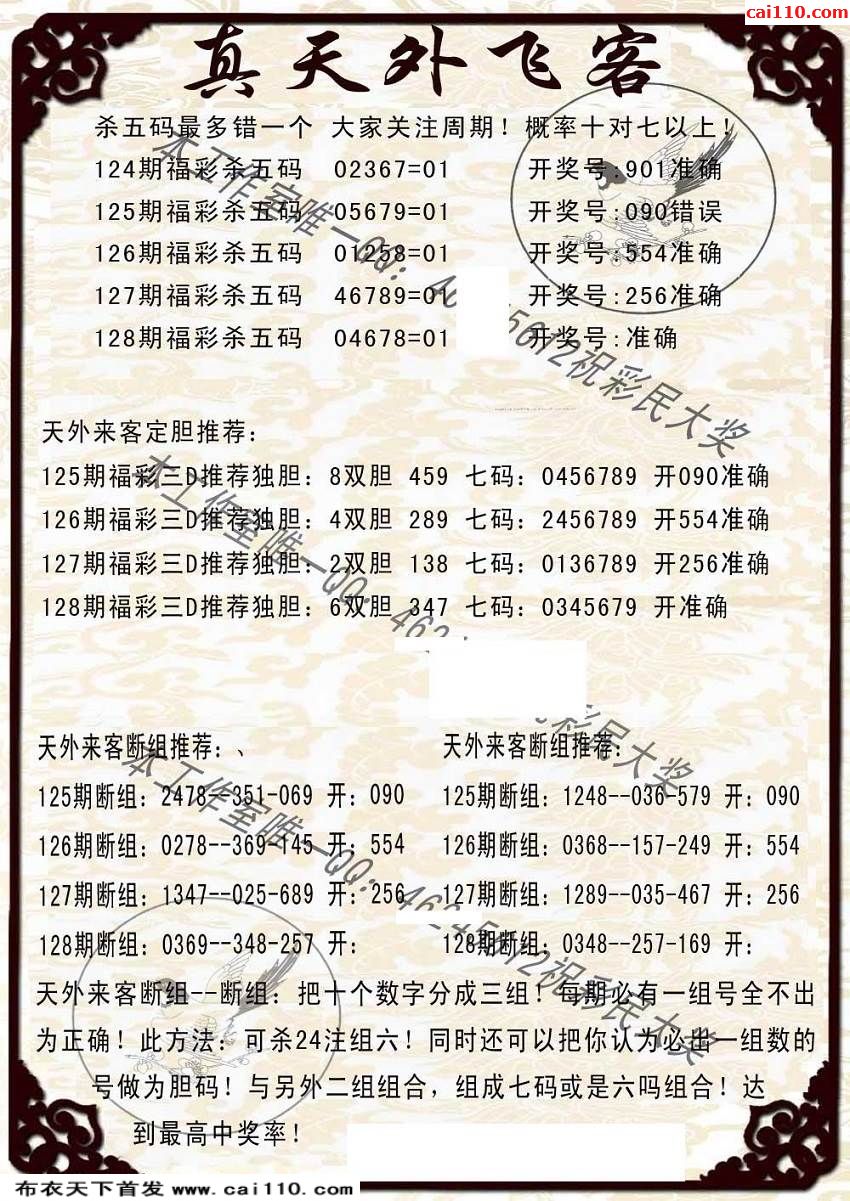 cai110.com
真天外飞客
杀五码最多错一个 大家关注周期！概率十对七以上！
124期福彩杀五码 02367=01 开奖号:901准确
125期福彩杀五码 05679=01 开奖号:090错误
126期福彩杀五码 01258=01 开奖号:554准确
127期福彩杀五码 46789=01 开奖号:256准确
128期福彩杀五码 04678=01 开奖号:准确
天外来客定胆推荐：
125期福彩三D推荐独胆：8双胆 459 七码：0456789 开090准确
126期福彩三D推荐独胆：4双胆 289 七码：2456789 开554准确
127期福彩三D推荐独胆：2双胆 138 七码：0136789 开256准确
128期福彩三D推荐独胆：6双胆 347 七码：0345679 开准确
天外来客断组推荐：、
125期断组：2478--351-069 开：090
126期断组：0278--369-145 开：554
127期断组：1347--025-689 开：256
128期断组：0369--348-257 开：
天外来客断组推荐：
125期断组：1248--036-579 开：090
126期断组：0368--157-249 开：554
127期断组：1289--035-467 开：256
128期断组：0348--257-169 开：
天外来客断组--断组：把十个数字分成三组！每期必有一组号全不出
为正确！此方法：可杀24注组六！同时还可以把你认为必出一组数的
号做为胆码！与另外二组组合，组成七码或是六吗组合！达
到最高中奖率！
本工作室唯一QQ：
5612祝彩民大奖
本工作室唯一QQ：462
彩民大奖
本工作室唯一QQ：46245612祝彩民大奖
布衣天下首发 www.cai110.com